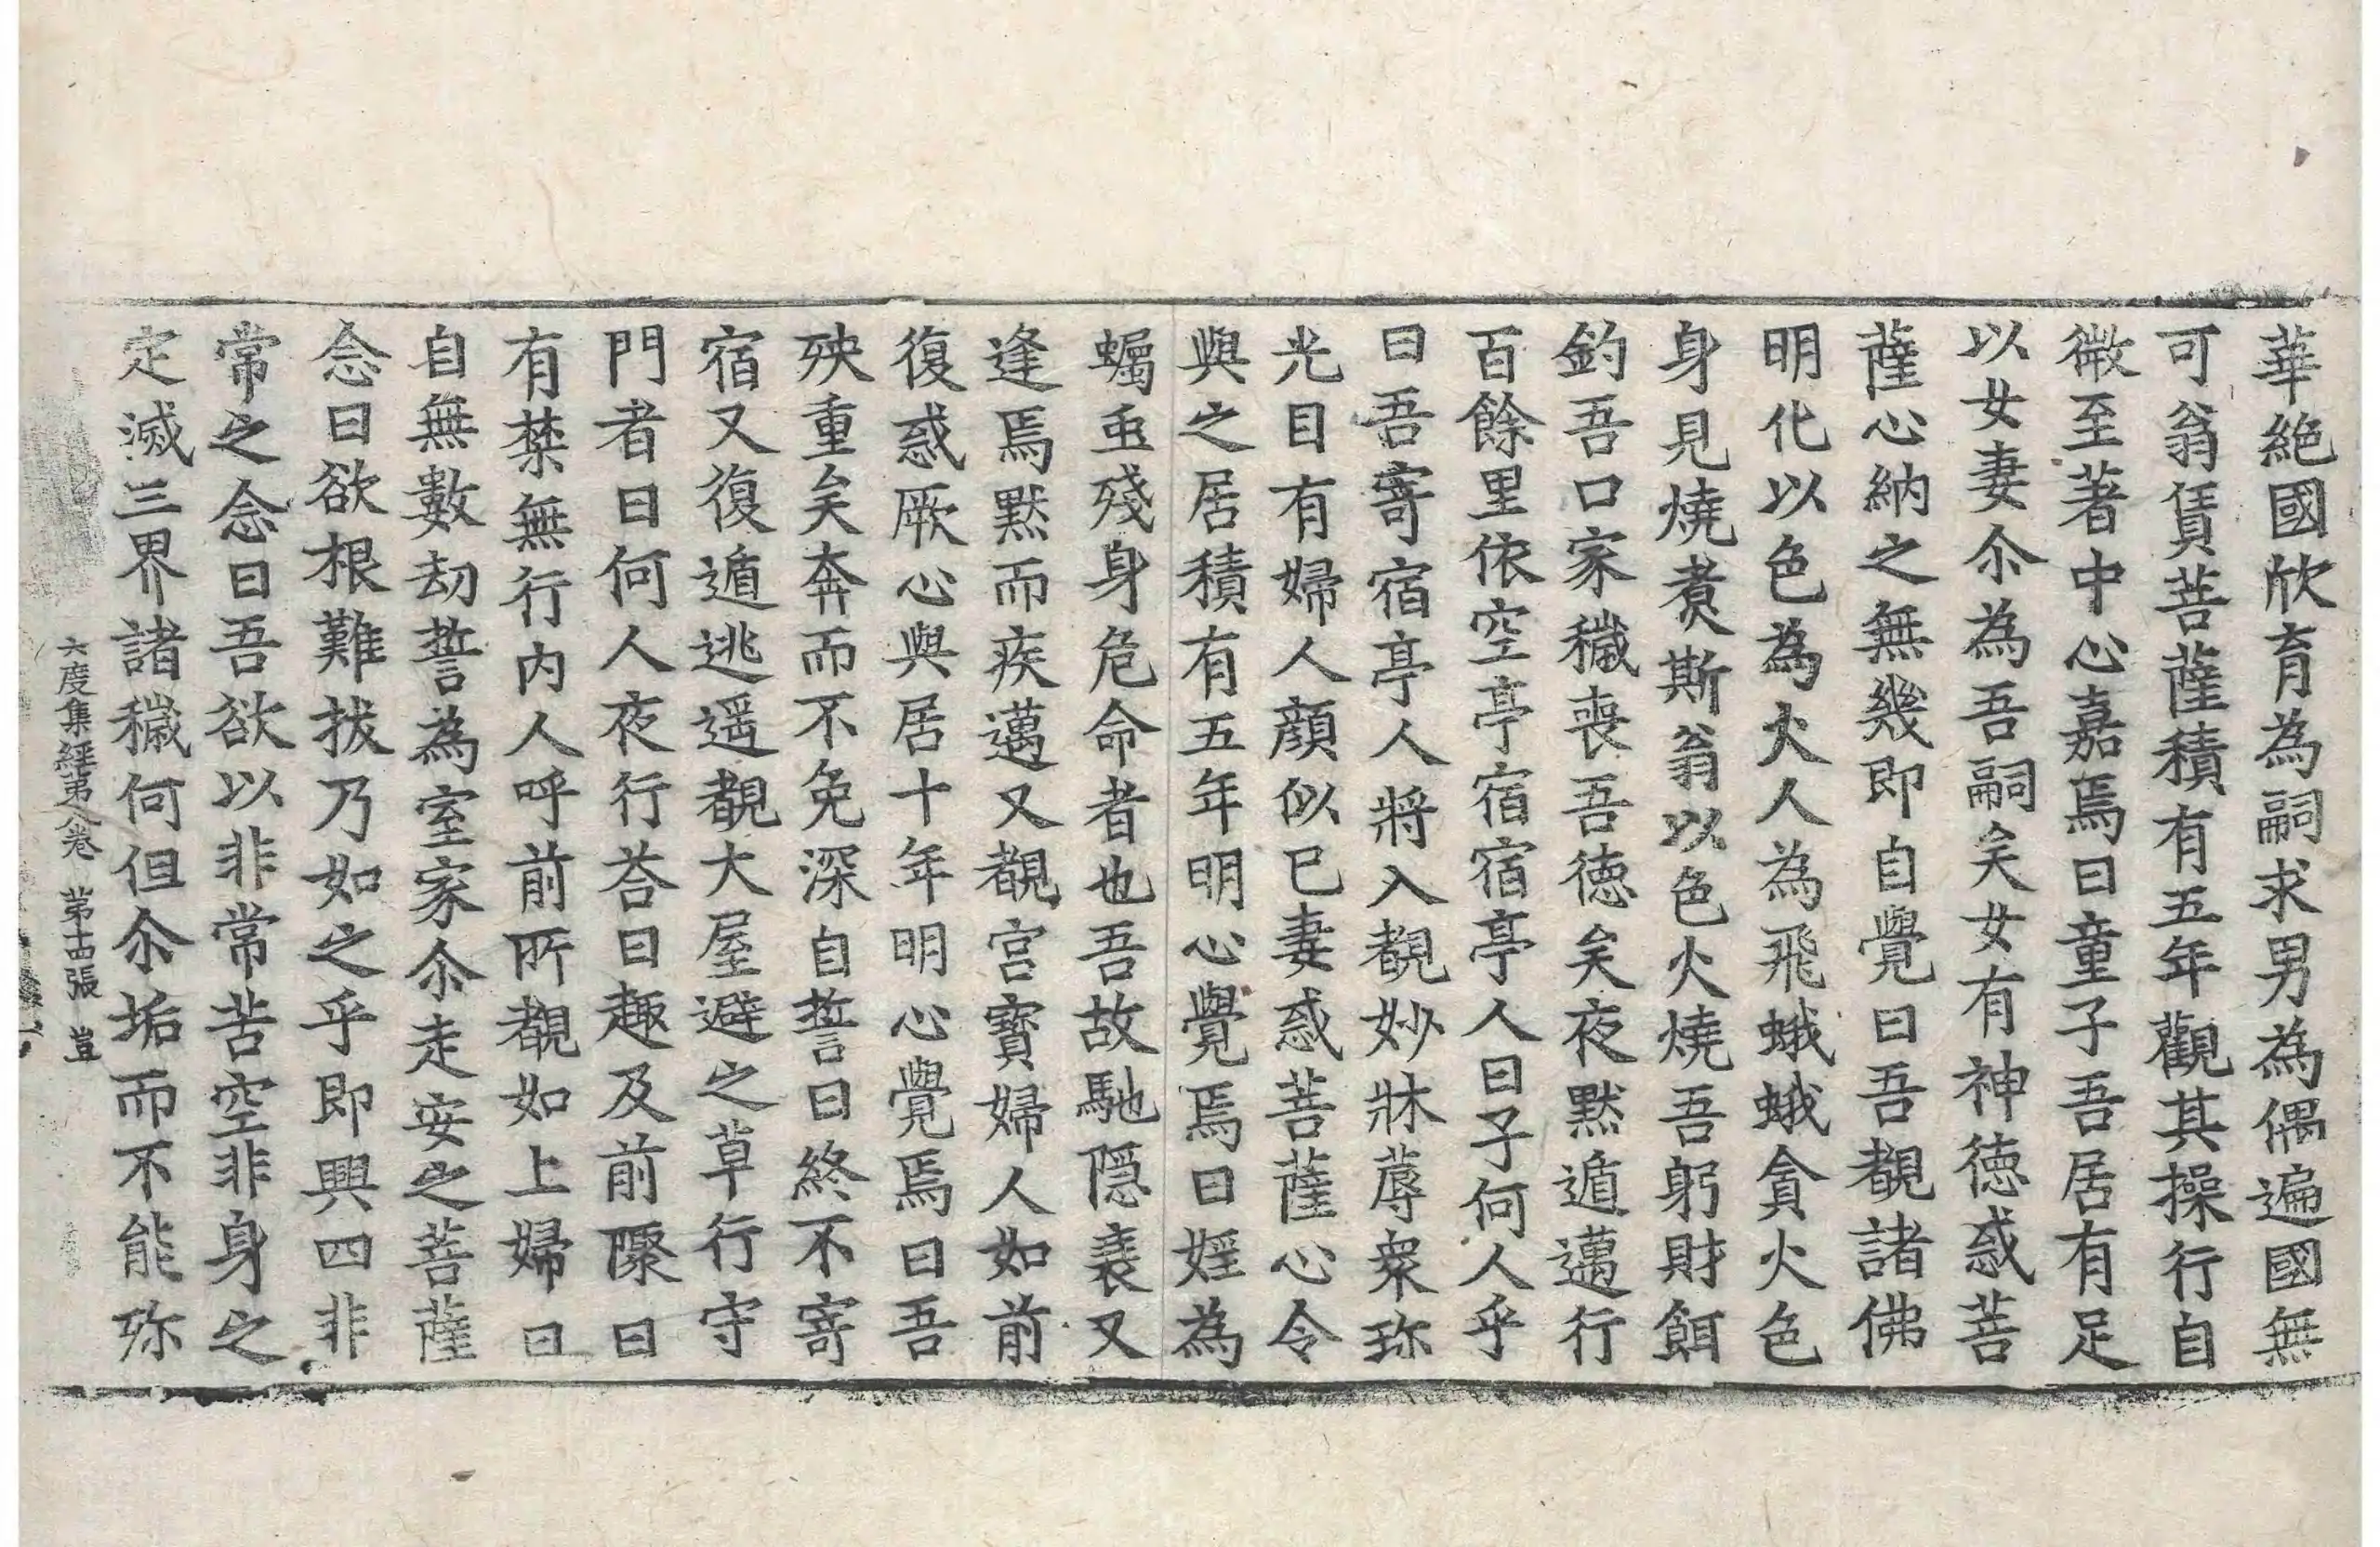 華絶國欣育為嗣求男為偶遍國無
可翁賃菩薩積有五年觀其操行自
微至著中心嘉焉曰童子吾居有足
以女妻尒為吾嗣矣女有神徳惑菩
薩心納之無幾即自覺曰吾覩諸佛
明化以色為火人為飛蛾蛾貪火色
身見燒煑斯翁以色火燒吾躬財餌
釣吾口家穢喪吾徳矣夜黙遁邁行
百餘里依空亭宿宿亭人曰子何人乎
曰吾寄宿亭人將入覩妙牀蓐衆珎
光目有婦人顔似已妻惑菩薩心令
與之居積有五年明心覺焉曰婬為
蠋䖝殘身危命者也吾故馳隠衰又
逢焉黙而疾邁又覩宫寳婦人如前
復惑厥心與居十年明心覺焉曰吾
殃重矣奔而不免深自誓曰終不寄
宿又復遁逃遥覩大屋避之草行守
門者曰何人夜行荅曰趣及前𨻶曰
有禁無行内人呼前所覩如上婦曰
自無數劫誓為室家尒走安之菩薩
念曰欲根難拔乃如之乎即興四非
常之念曰吾欲以非常苦空非身之
定滅三界諸穢何但尒垢而不能殄
六度集經第八卷　第十四張　豈